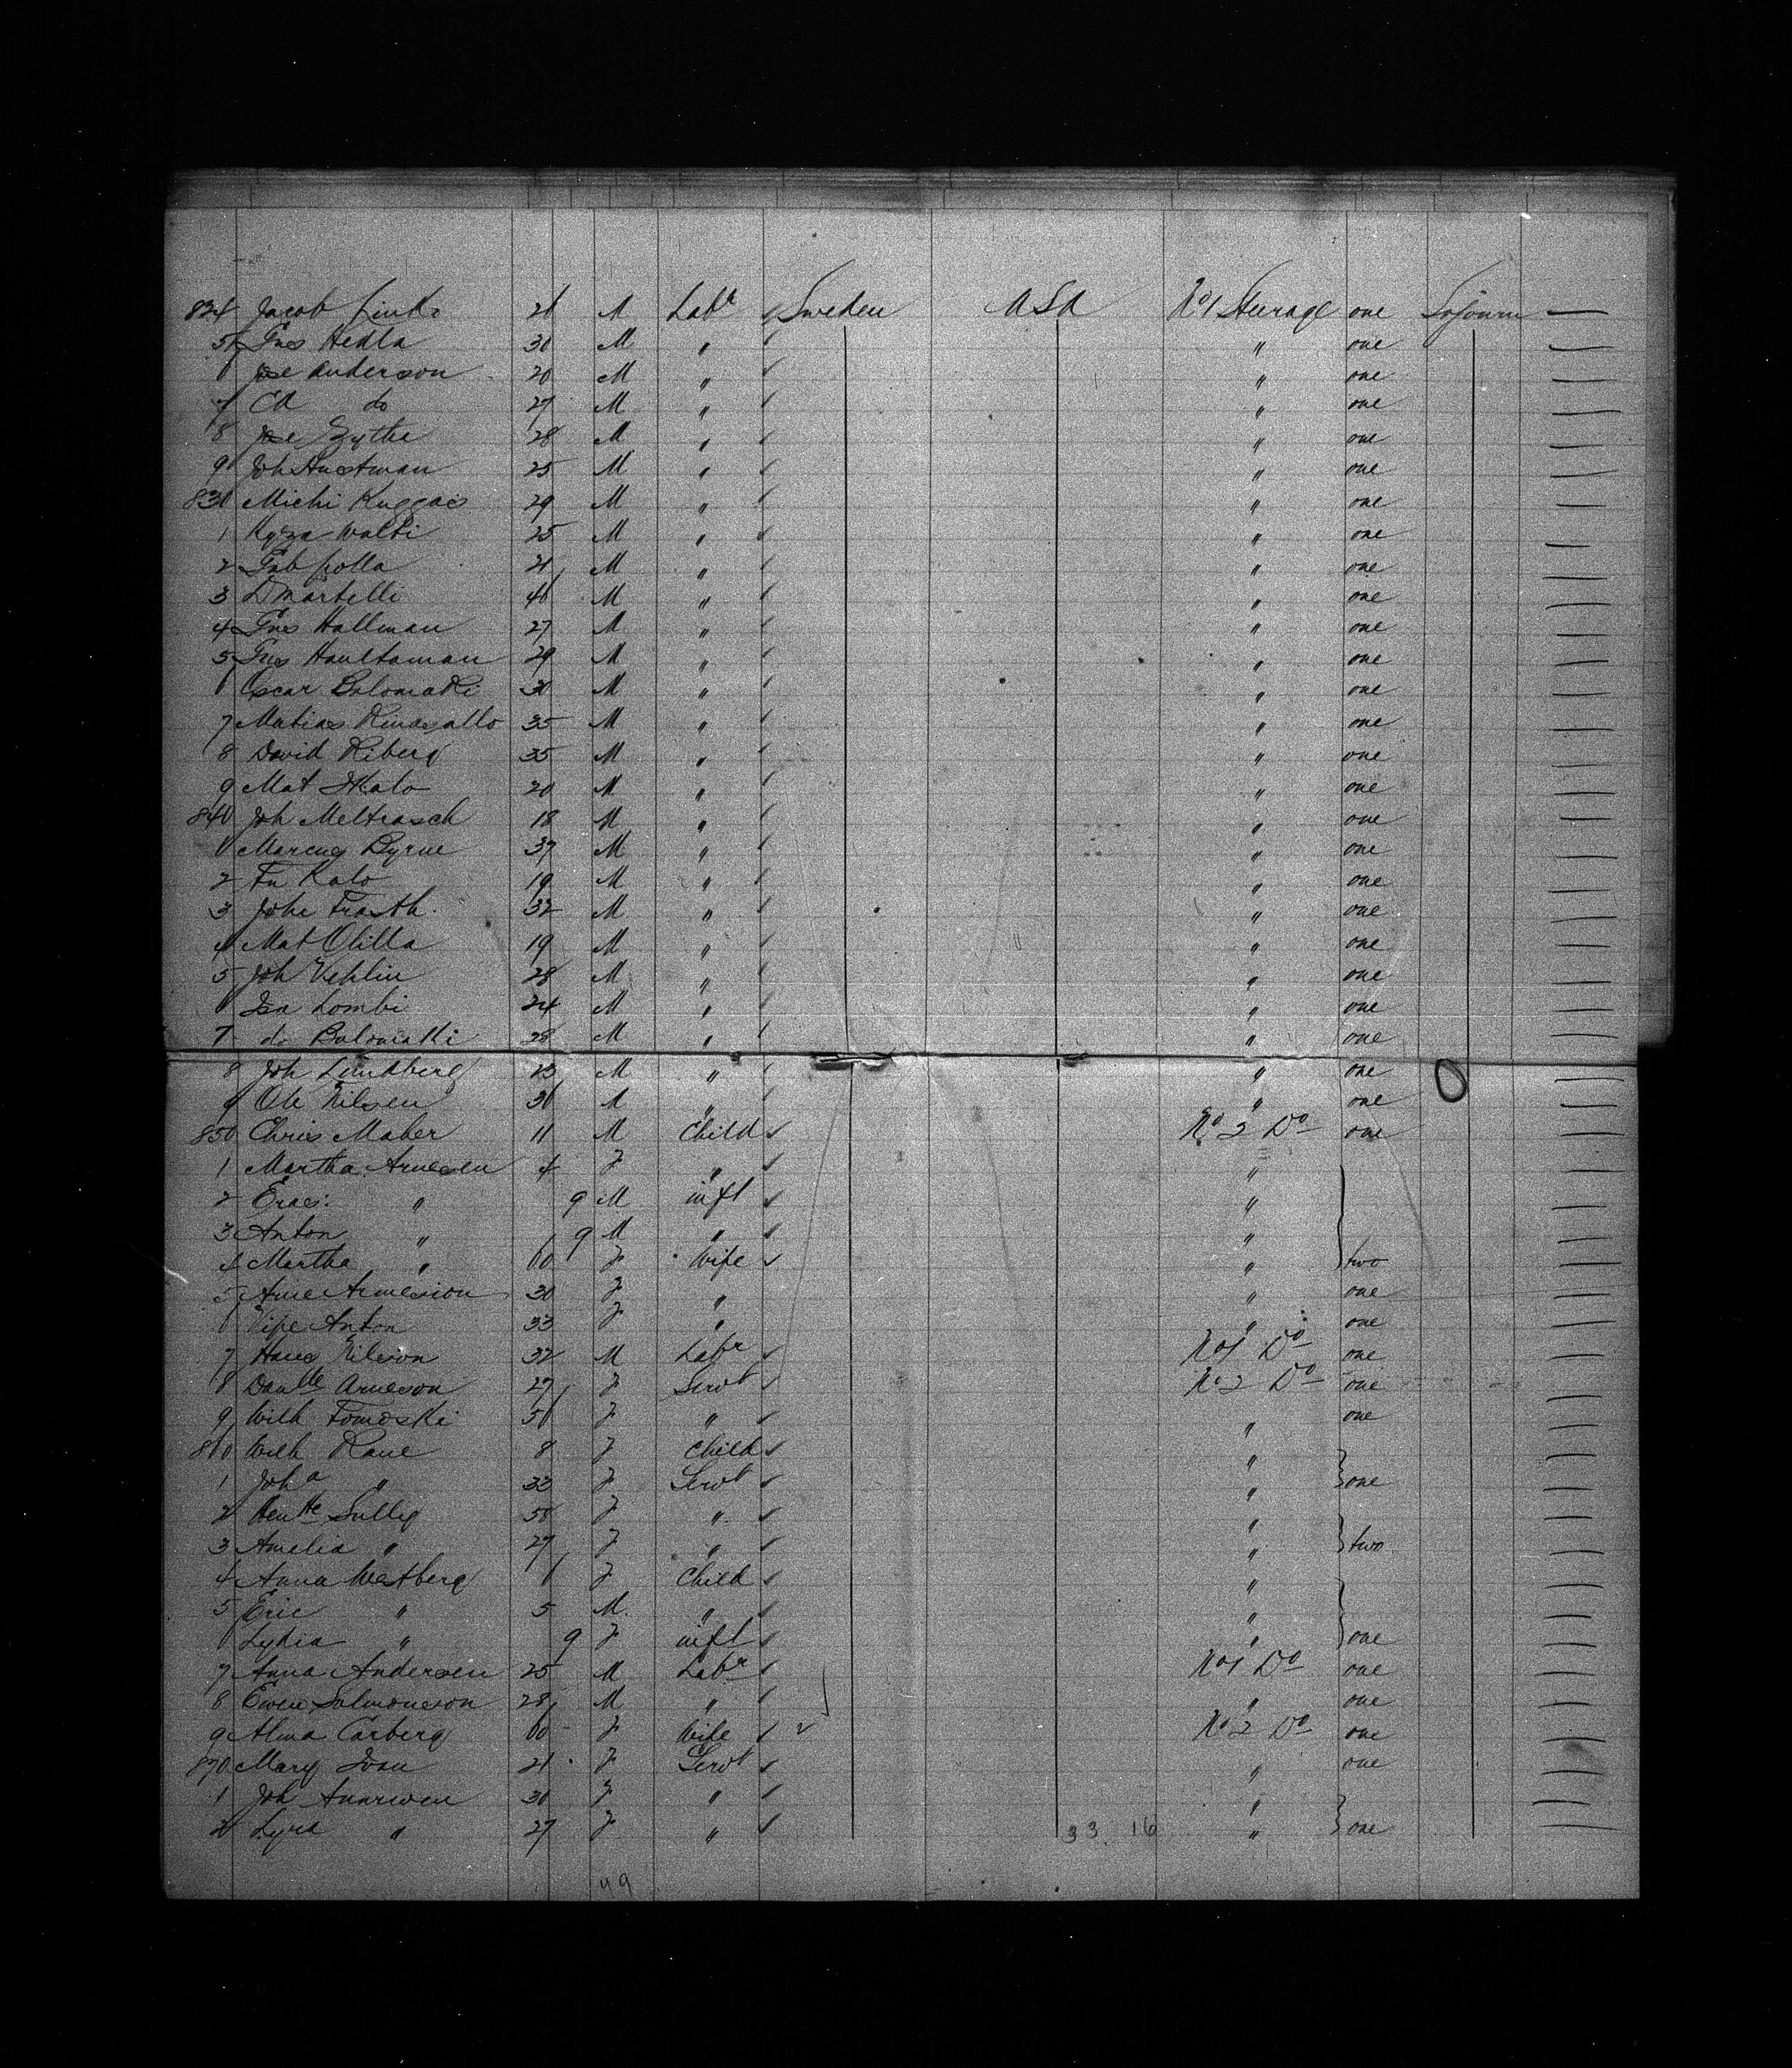 824 Jacob Links 21 M Labr Sweden USA No 1 Steerage one Sojourn —
5 Gus Hedla 30 M " " one —
6 Jos Anderson 20 M " " one —
7 CA do 27 M " " one —
8 Jos Zytha 28 M " " one —
9 Joh Hustman 25 M " " one —
830 Michi Kuggas 29 M " " one —
1 Kyza Walti 25 M " " one —
2 Gab 21 M " " one —
3 D Martelli 40 M " " one —
4 Gus Hallman 27 M " " one —
5 Gus Haultaman 29 M " " one —
6 Oscar Bolomaki 30 M " " one —
7 Matias 35 M " " one —
8 David Riberg 35 M " " one —
9 Mat Skalo 20 M " " one —
840 Joh Meltrasch 18 M " " one —
1 Marcus Byrne 37 M " " one —
2 Kalo 19 M " " one —
3 Johe Frasth 32 M " " one —
4 Mat Olilla 19 M " " one —
5 Joh Vehlin 28 M " " one —
6 Isa Lombi 24 M " " one —
7 do 28 M " " one —
8 Joh Lundberg 23 M " " one —
9 Ole Nilsen 30 M " " one —
850 Chris Maber 11 M Child No 2 Do one —
1 Martha Arnesen 4 F " " —
2 " 9 M inft " —
3 Anton " 9 M " " —
4 Martha " 60 F Wife " two —
5 Arnesion 30 F " " one —
6 Wife Anton 33 F " " one —
7 Hans Nilsson 32 M Labr No 1 Do one —
8 Arneson 27 F Servt No 2 Do one —
9 Wilh Tomoski 51 F " " one —
860 Wilh Rane 8 F Child " —
1 Joha " 33 F Servt " one —
2 Sulley 58 F " " —
3 Amelia " 27 F " " two —
4 Anna Westberg 6 F Child " —
5 Eric " 5 M " " —
6 Lydia " 9 F inft " one —
7 Anna Andersen 25 M Labr No 1 Do one —
8 Salmoneson 28 M " " one —
9 Alma Carberg 60 F Wife No 2 Do one —
870 Mary 21 F Servt " one —
1 Joh 30 F " " —
2 Lyra " 27 F " 33 16 " one —
49